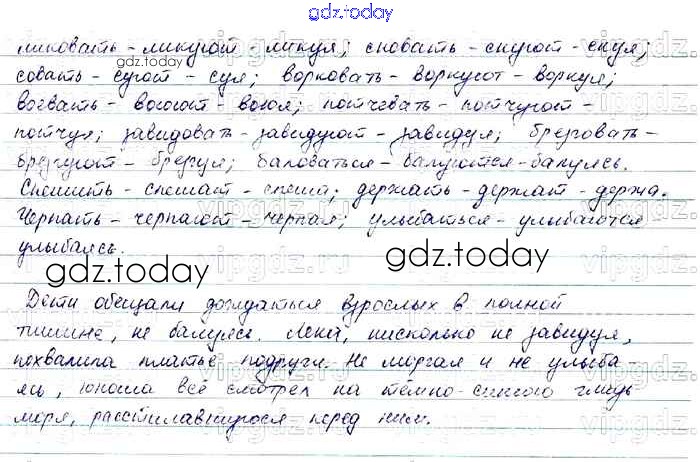 gdz.today
ликовать - ликуют ликуя; сновать - снуют - снуя;
совать - суют - суя; ворковать - воркуют - воркуя;
воевать - воюют - воюя; потчевать - потчуют -
потчуя; завидовать - завидуют - завидуя; брезговать -
брезгуют - брезгуя; баловаться - балуются - балуясь.
Спешить - спешат - спеша; держать - держат - держа.
Черпать - черпают - черпая; улыбаться - улыбаются
улыбаясь.
gdz.today gdz.today
Дети обещали дождаться взрослых в полной
тишине, не балуясь. Лена, нисколько не завидуя,
похвалила платье подруги. Не моргая и не улыба-
ясь, юноша всё смотрел на тёмно-синюю гладь
моря, расстилавшуюся перед ним.